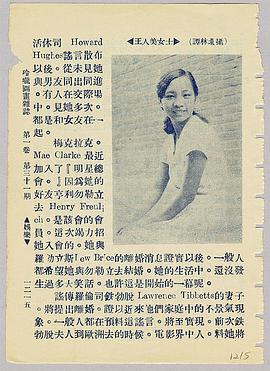 ◀王人美女士▶
活休司 Howard
Hughes謠言散布
以後。從未見她
與男友同出同進
。有人在交際場
中。見她多次。
都是和女友在一
起。
梅克拉克。
Mae Clarke 最近
加入了『明星總
會』。因為她的
好友亨利勿勒立
去 Henry Freuli
ch. 是該會的會
員。這次竭力招
她入會的。她與
羅勃立斯Lew Brice的離婚消息證實以後。一般人
都希望她與勿勒立去結婚。她的生活中。還沒發
生過多大笑話。也許這是開始的一幕呢。
謠傳羅倫司鉄勃脫 Lawrence Tibbetts的妻子
將提出離婚。證以近來他們庭中的不景氣現
象。一般人都在預料這謠言。將至實現。前次鉄
勃脫夫人到歐洲去的時候。電影界中人。料她將
玲瓏圖畫雜誌 第一卷 第三十一期 ▲娛樂▼ 一二一五
1215